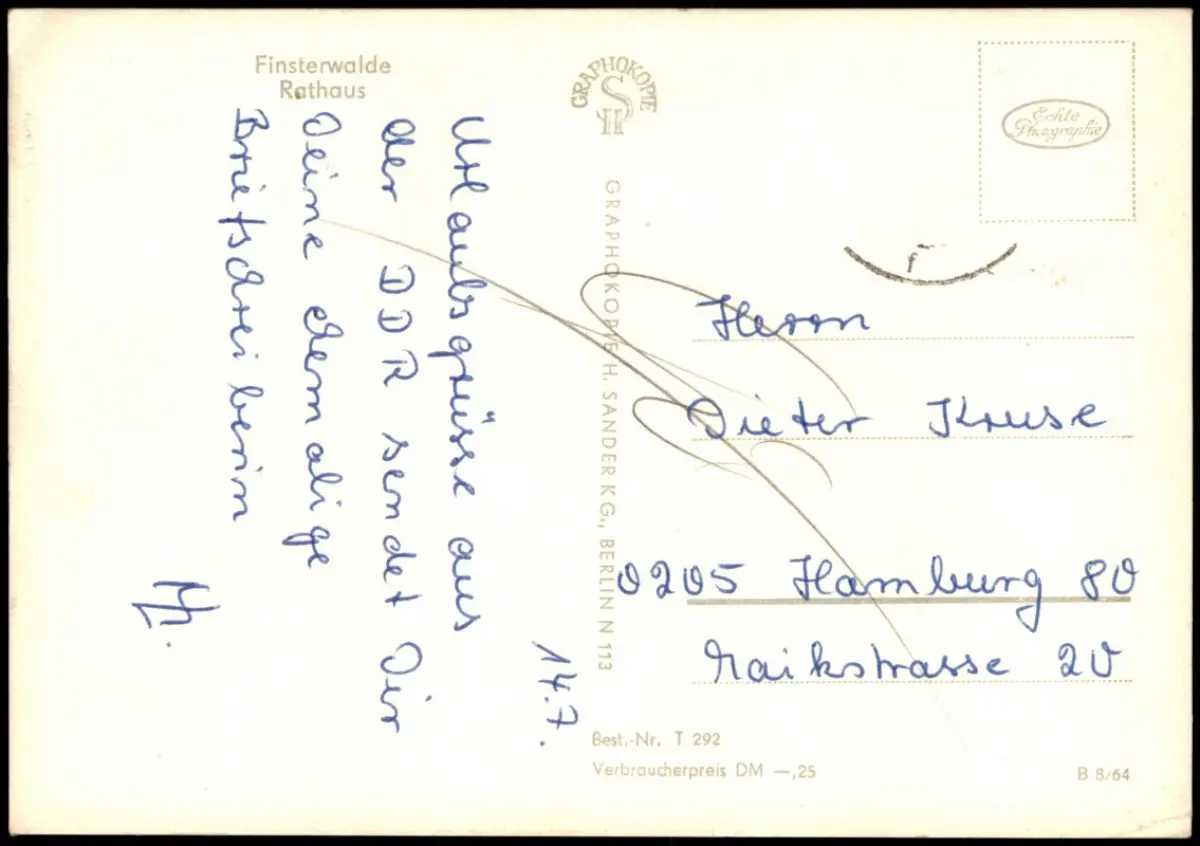 Finsterwalde
Rathaus
GRAPHOKOPIE
SH
Echte
Photographie
14.7.
Urlaubsgrüsse aus
der DDR sendet Dir
Deine ehemalige
Briefschreiberin
GRAPHOKOPIE H. SANDER KG., BERLIN N 113
Herrn
Dieter Kruse
0205 Hamburg 80
strasse 20
Best.-Nr. T 292
Verbraucherpreis DM —,25
B 8/64